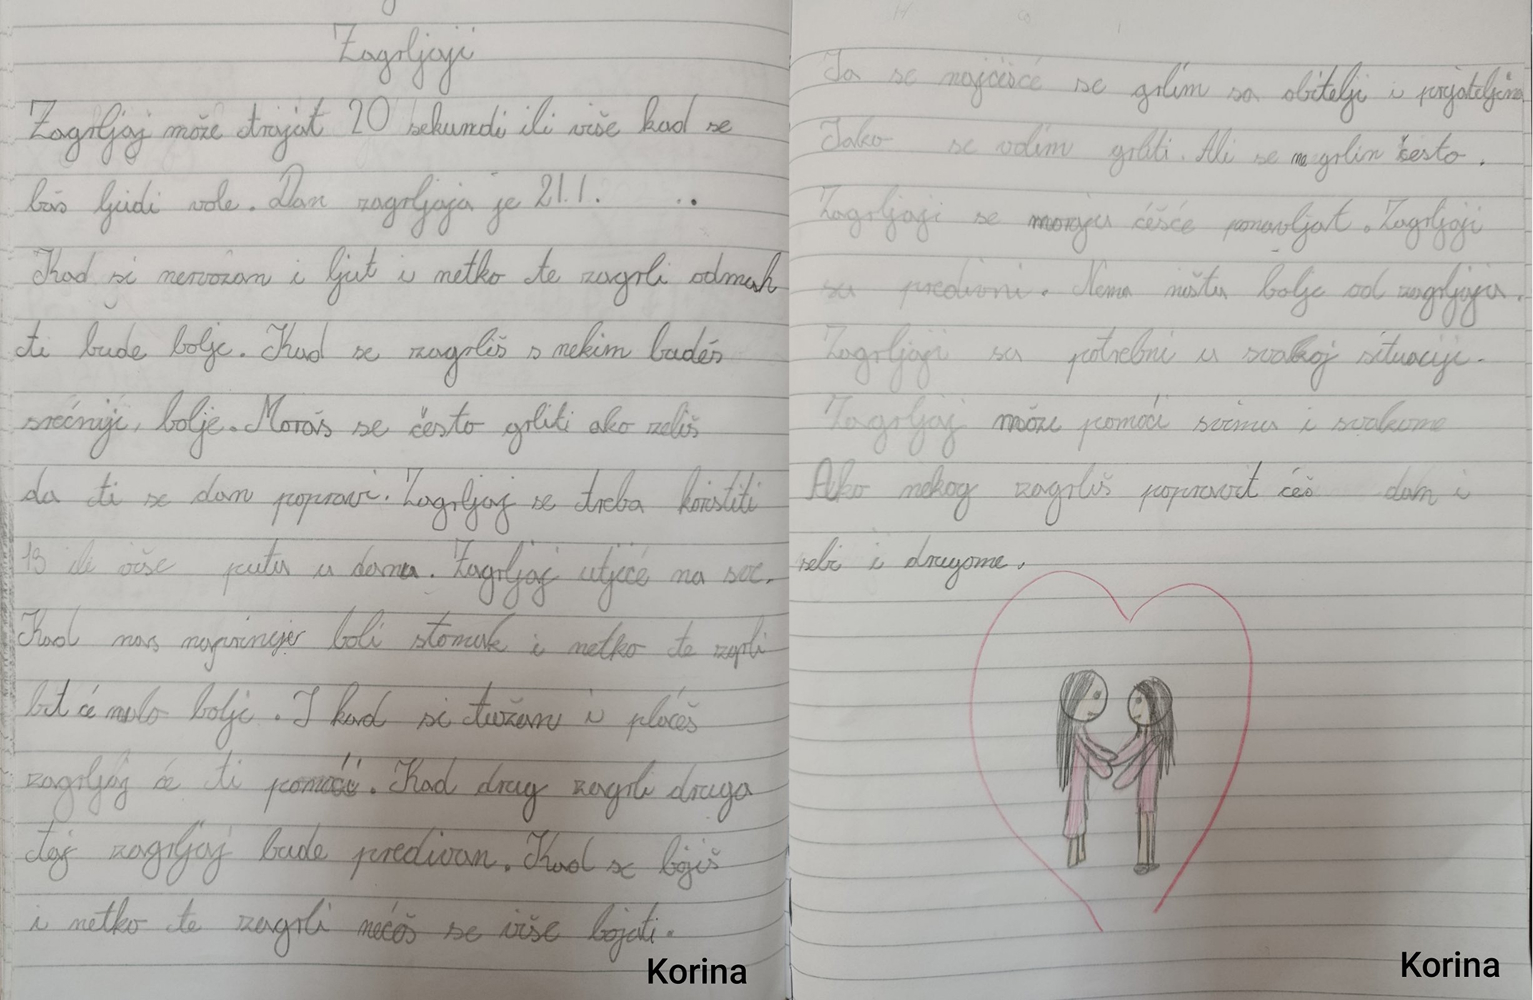 Zagrljaji
Zagrljaj može trajat 20 sekundi ili više kad se
baš ljudi vole. Dan zagrljaja je 21.1.
Kad si nervozan i ljut i netko te zagrli odmah
ti bude bolje. Kad se zagrliš s nekim budeš
srećniji, bolje. Moraš se često grliti ako želiš
da ti se dan popravi. Zagrljaj se treba koristiti
13 ili više puta u danu. Zagrljaj utječe na soc.
Kad nas najvinije boli stomak i netko te zagrli
bit će malo bolje. I kad si tužan i plačeš
zagrljaj će ti pomoći. Kad drug zagrli druga
taj zagrljaj bude predivan. Kad se bojiš
i netko te zagrli nećeš se više bojati.
Korina
Ja se najčešće se grlim sa obitelji i prijateljima
Jako se volim grliti. Ali se ne grlim često.
Zagrljaji se moraju češće ponavljat. Zagrljaji
su predivni. Nema ništa bolje od zagrljaja.
Zagrljaji su potrebni u svakoj situaciji.
Zagrljaj može pomoći svima i svakome
Ako nekog zagrliš popravit ćeš dan i
sebi i drugome.
Korina